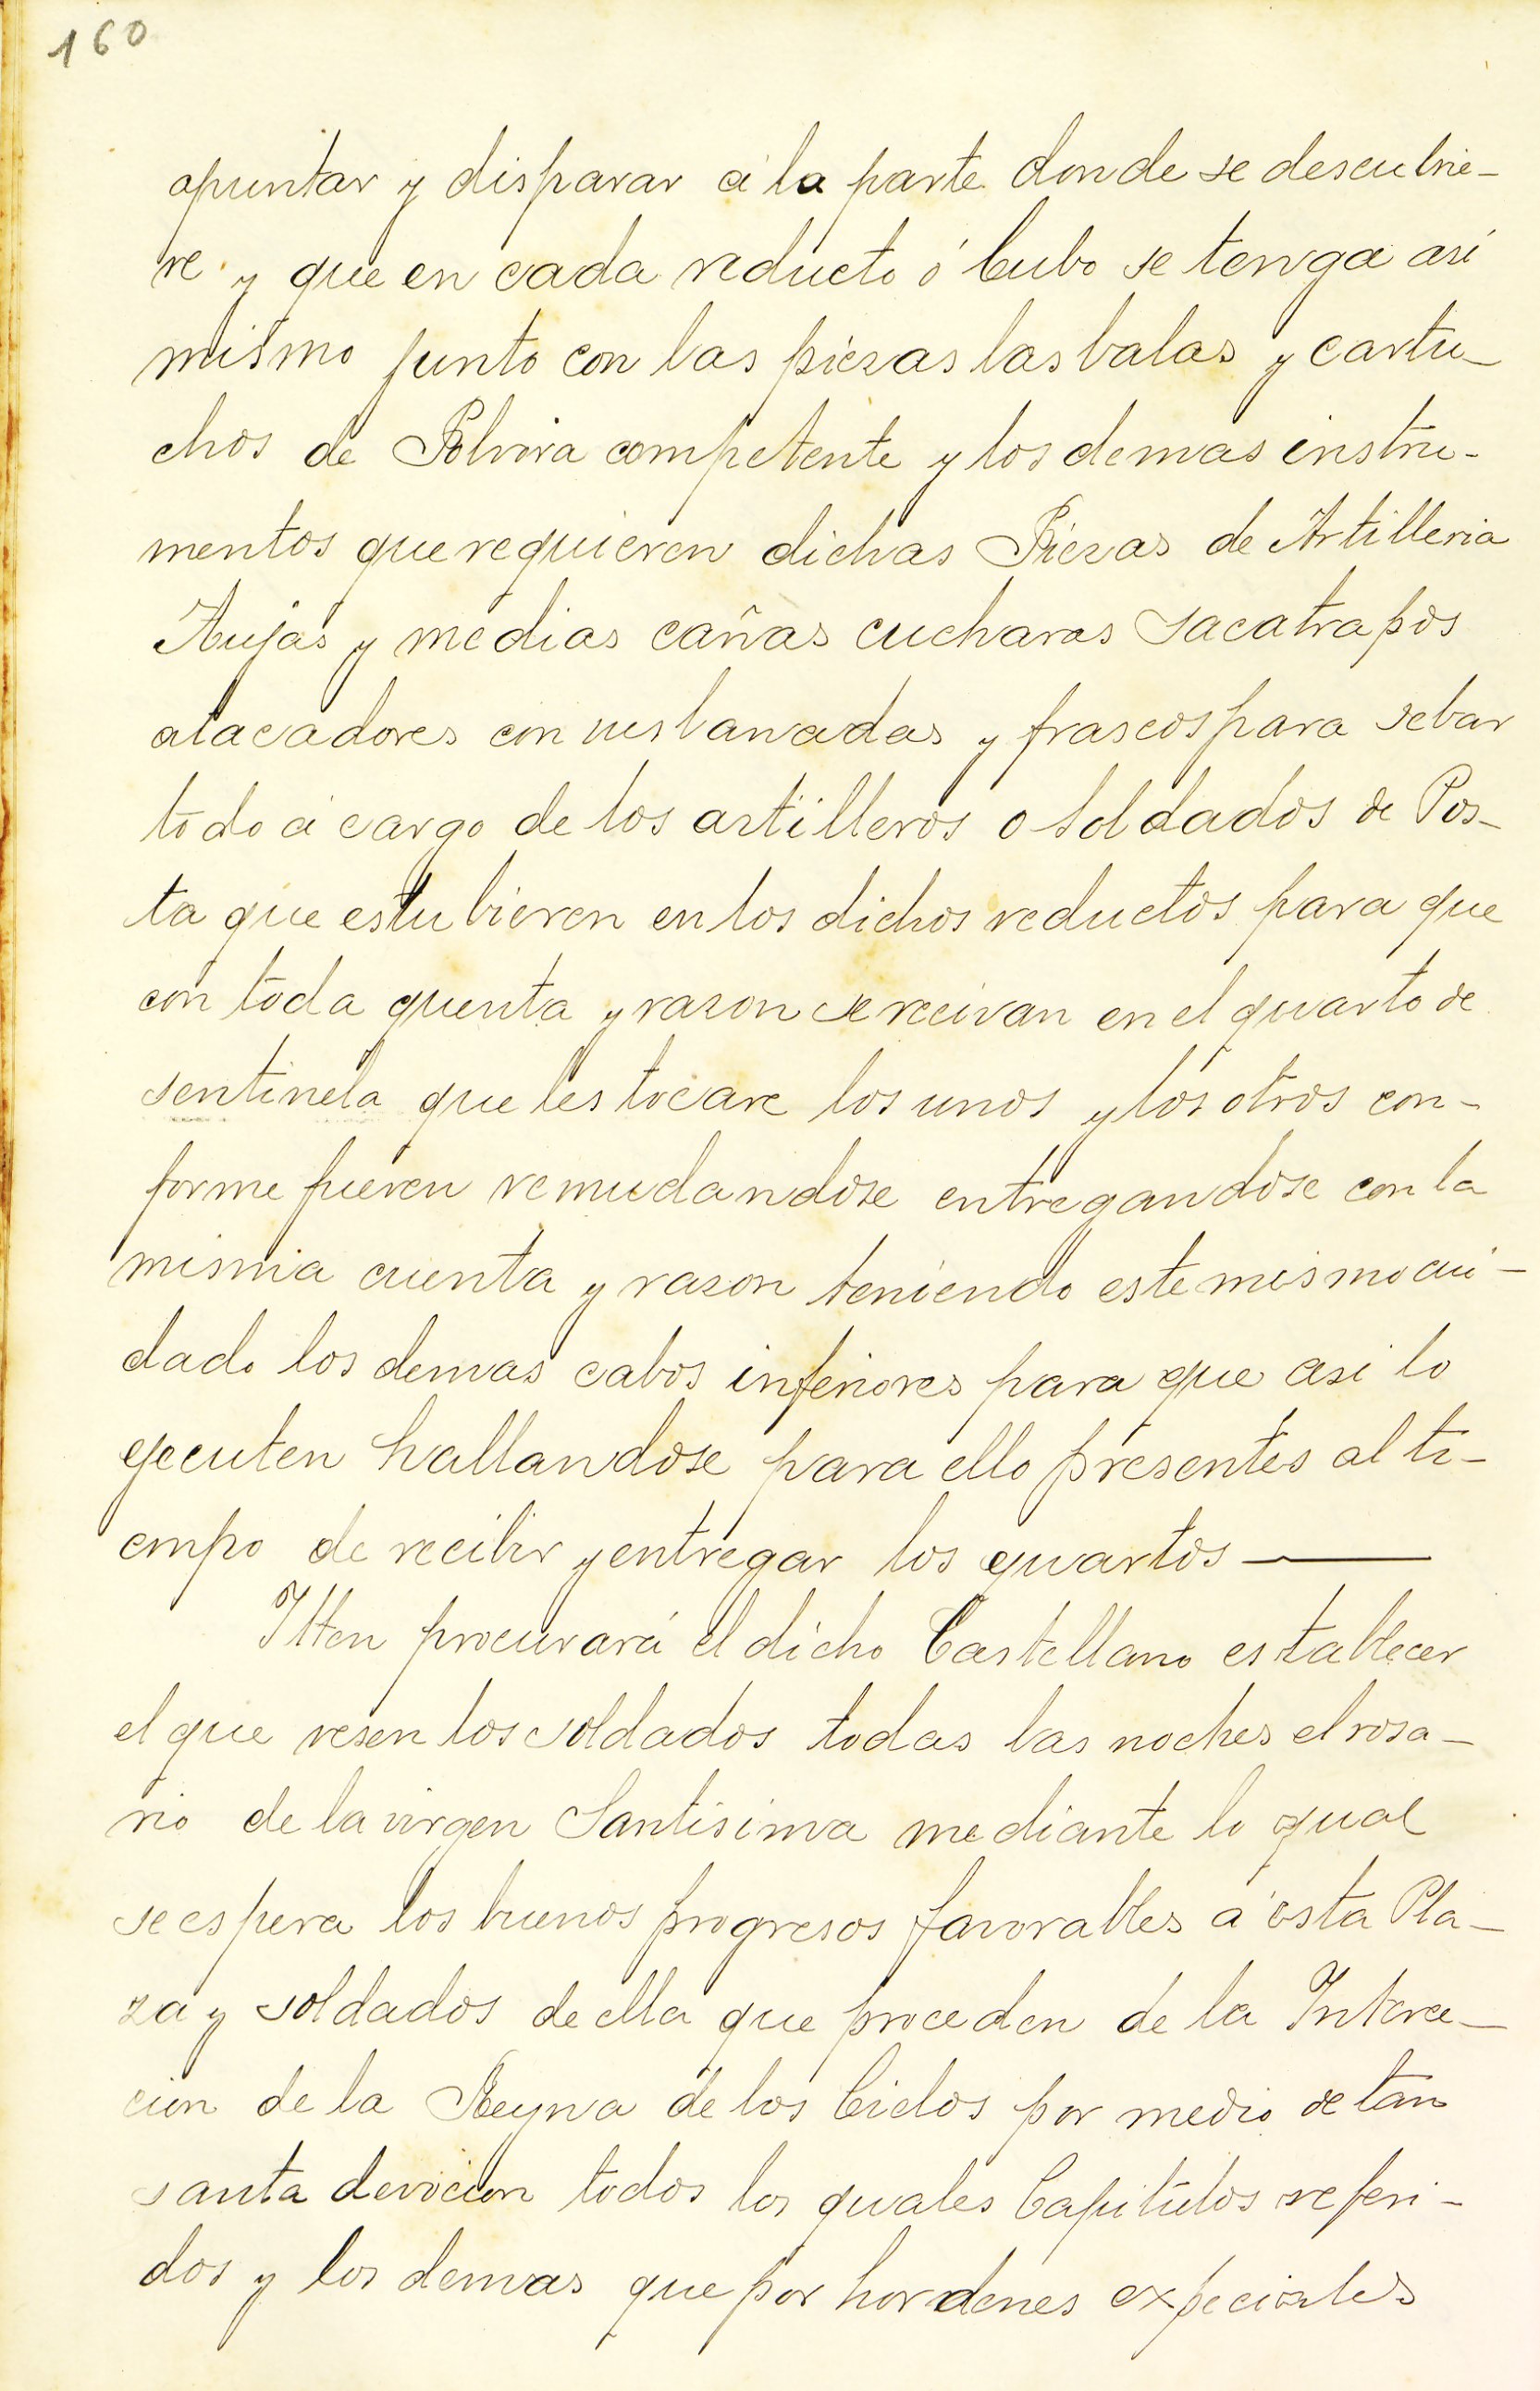 160
apuntar y disparar á la parte donde se descubrie-
re y que en cada reducto ó Cubo se tenga asi
mismo junto con las piezas las balas y cartu-
chos de Polvora competente y los demas instru-
mentos que requieren dichas Piezas de Artilleria
Aujas y medias cañas cucharas sacatrapos
atacadores con sus lanadas y frascos para sebar
todo á cargo de los artilleros o soldados de Pos-
ta que estubieren en los dichos reductos para que
con toda quenta y razon se reciван en el quarto de
sentinela que les tocare los unos y los otros con-
forme fueren remudandose entregandose con la
misma cuenta y razon teniendo este mismo cui-
dado los demas cabos inferiores para que asi lo
ejecuten hallandose para ello presentes al ti-
empo de recibir y entregar los quartos
Itten procurará el dicho Castellano establecer
el que resen los soldados todas las noches el rosa-
rio de la virgen Santisima mediante lo qual
se espera los buenos progresos favorables á ésta Pla-
za y soldados de ella que proceden de la Interce-
cion de la Reyna de los Cielos por medio de tan
santa devocion todos los quales Capitulos referi-
dos y los demas que por hordenes expeciales